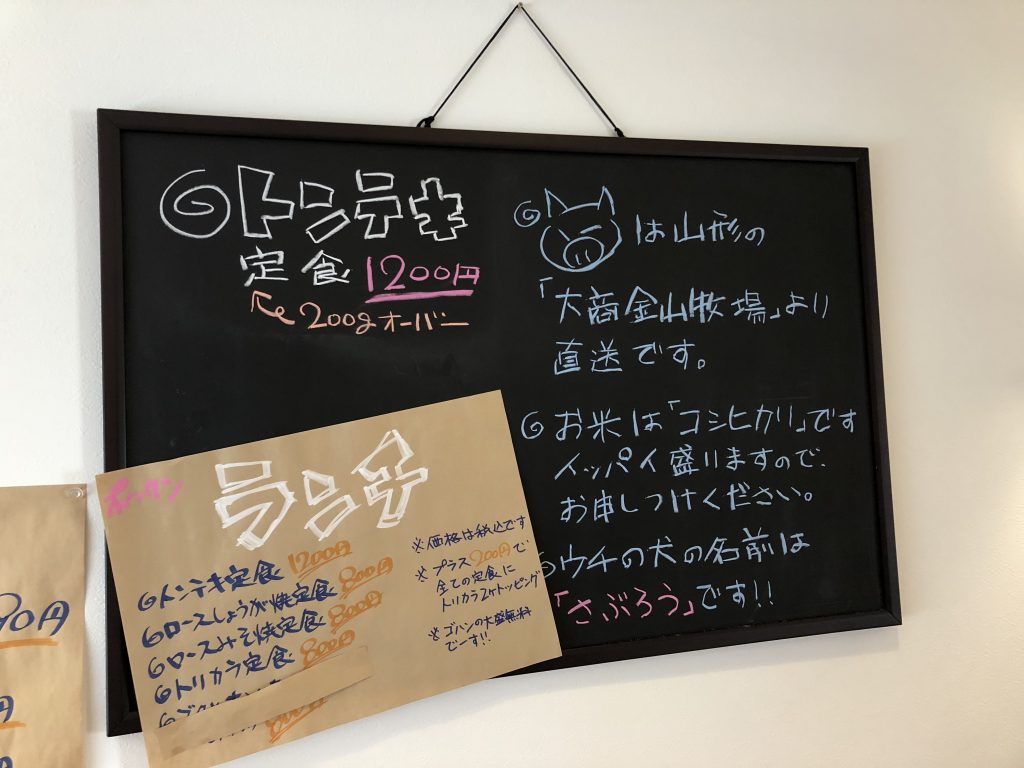 トンテキ
定食 1200円
200gオーバー
は山形の
「大商金山牧場」より
直送です。
お米は「コシヒカリ」です
イッパイ盛りますので、
お申しつけください。
ウチの犬の名前は
「さぶろう」です!!
ランチ
トンテキ定食 1200円
ロースしょうが焼定食 900円
ロースみそ焼定食 800円
トリカラ定食 800円
800円
※価格は税込です
※プラス200円で
全ての定食に
トリカラ2ヶトッピング
※ゴハンの大盛無料
でーす!!
90円